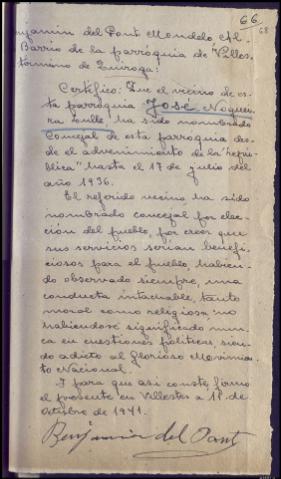 66
68
Benjamin del Pont Mondelo Al.
Barrio de la parróquia de Villes-
termino de Quiroga:
Certifico: Que el vecino de es-
ta parroquia José Noguei-
ra ha sido nombrado
Concejal de esta parroquia des-
de el advenimiento de la "repú-
blica" hasta el 17 de julio del
año 1936.
El referido vecino ha sido
nombrado concejal por elec-
ción del pueblo, por creer que
sus servicios serian benefi-
ciosos para el pueblo, habien-
do observado siempre, una
conducta intachable, tanto
moral como religiosa, no
habiendose significado nun-
ca en cuestiones politicas, sien-
do adicto al Glorioso Movimien-
to Nacional.
I para que asi conste, firmo
el presente en Villester a 18 de
Octubre de 1941.
Benjamin del Pont